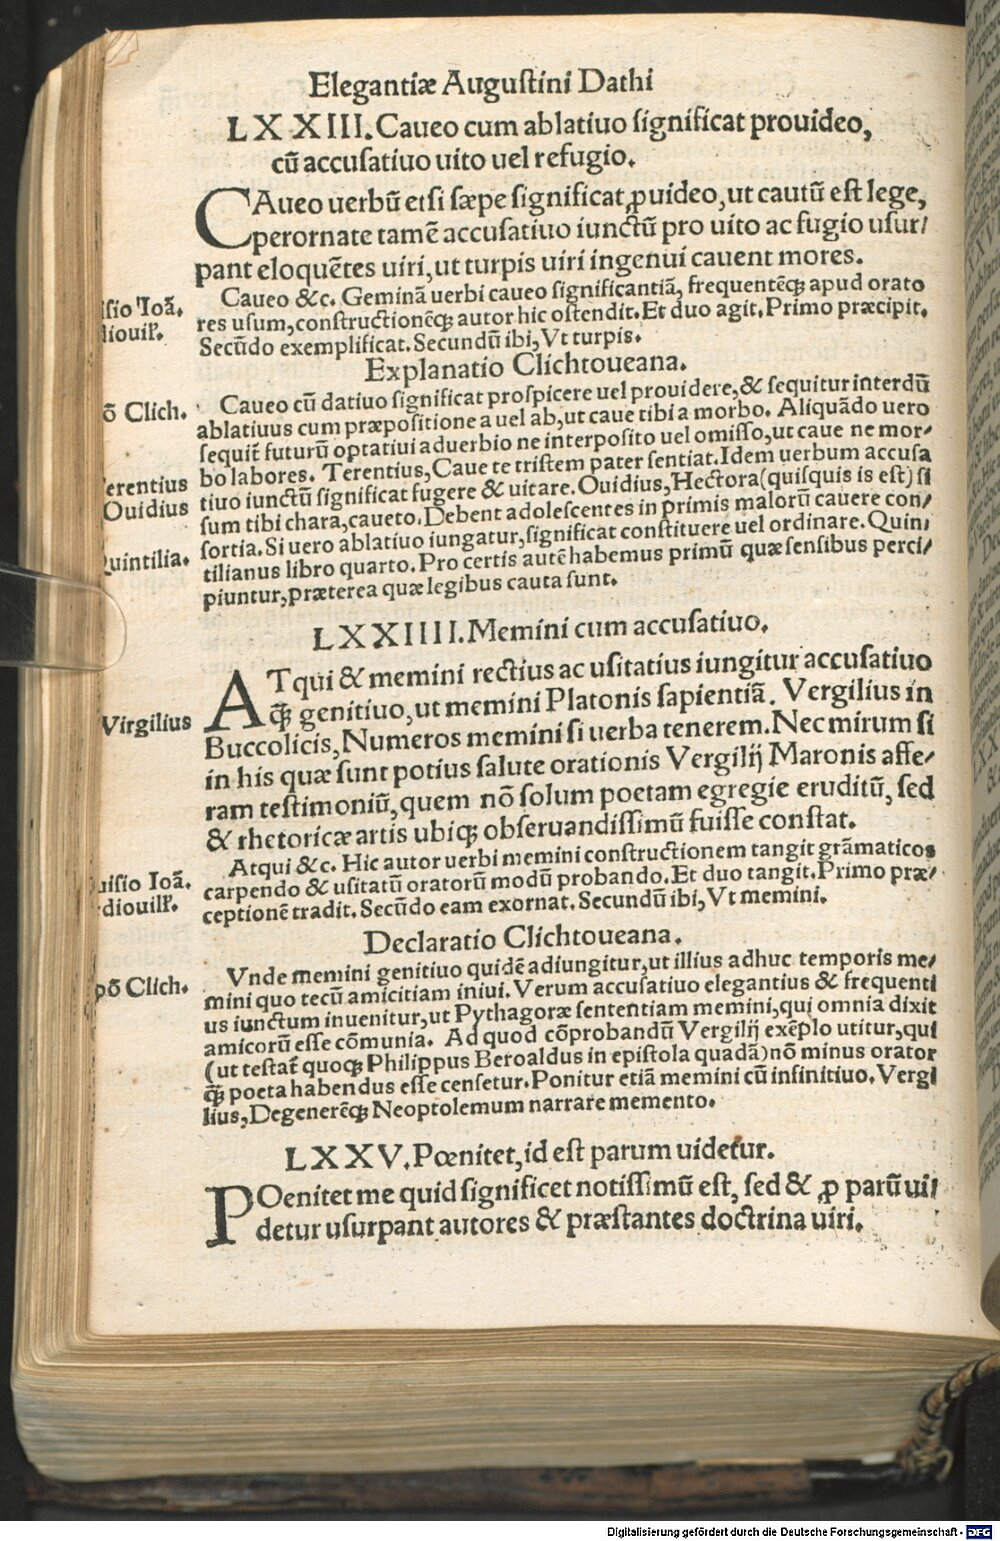 Elegantiæ Augustini Dathi
LXXIII. Caueo cum ablatiuo significat prouideo,
cū accusatiuo uito uel refugio.
CAueo uerbū etsi sæpe significat ꝓuideo, ut cautū est lege,
perornate tamē accusatiuo iunctū pro uito ac fugio usur/
pant eloquētes uiri, ut turpis uiri ingenui cauent mores.
Caueo &c. Geminā uerbi caueo significantiā, frequentēqꝫ apud orato
isio Ioā.
res usum, constructionēqꝫ autor hic ostendit. Et duo agit. Primo præcipit.
diouil̃.
Secūdo exemplificat. Secundū ibi, Vt turpis.
Explanatio Clichtoueana.
Caueo cū datiuo significat prospicere uel prouidere, & sequitur interdū
õ Clich.
ablatiuus cum præpositione a uel ab, ut caue tibi a morbo. Aliquādo uero
sequit̃ futurū optatiui aduerbio ne interposito uel omisso, ut caue ne mor/
bo labores. Terentius, Caue te tristem pater sentiat. Idem uerbum accusa
erentius
tiuo iunctū significat fugere & uitare. Ouidius, Hectora (quisquis is est) si
Ouidius
sum tibi chara, caueto. Debent adolescentes in primis malorū cauere con/
sortia. Si uero ablatiuo iungatur, significat constituere uel ordinare. Quin/
Quintilia.
tilianus libro quarto. Pro certis autē habemus primū quæ sensibus perci/
piuntur, præterea quæ legibus cauta sunt.
LXXIIII. Memini cum accusatiuo.
ATqui & memini rectius ac usitatius iungitur accusatiuo
q̃ꝫ genitiuo, ut memini Platonis sapientiā. Vergilius in
Virgilius
Buccolicis, Numeros memini si uerba tenerem. Nec mirum si
in his quæ sunt potius salute orationis Vergilij Maronis affe/
ram testimoniū, quem nō solum poetam egregie eruditū, sed
& rhetoricæ artis ubiqꝫ obseruandissimū fuisse constat.
Atqui &c. Hic autor uerbi memini constructionem tangit grāmaticos
uisio Ioā.
carpendo & usitatū oratorū modū probando. Et duo tangit. Primo præ/
diouill̃.
ceptionē tradit. Secūdo eam exornat. Secundū ibi, Vt memini.
Declaratio Clichtoueana.
Vnde memini genitiuo quidē adiungitur, ut illius adhuc temporis me/
põ Clich.
mini quo tecū amicitiam iniui. Verum accusatiuo elegantius & frequenti
us iunctum inuenitur, ut Pythagoræ sententiam memini, qui omnia dixit
amicorū esse cōmunia. Ad quod cōprobandū Vergilij exēplo utitur, qui
(ut testat̃ quoqꝫ Philippus Beroaldus in epistola quadā) nō minus orator
q̃ꝫ poeta habendus esse censetur. Ponitur etiā memini cū infinitiuo. Vergi
lius, Degenerēqꝫ Neoptolemum narrare memento.
LXXV. Pœnitet, id est parum uidetur.
POenitet me quid significet notissimū est, sed & ꝓ parū ui/
detur usurpant autores & præstantes doctrina uiri.
Digitalisierung gefördert durch die Deutsche Forschungsgemeinschaft - DFG